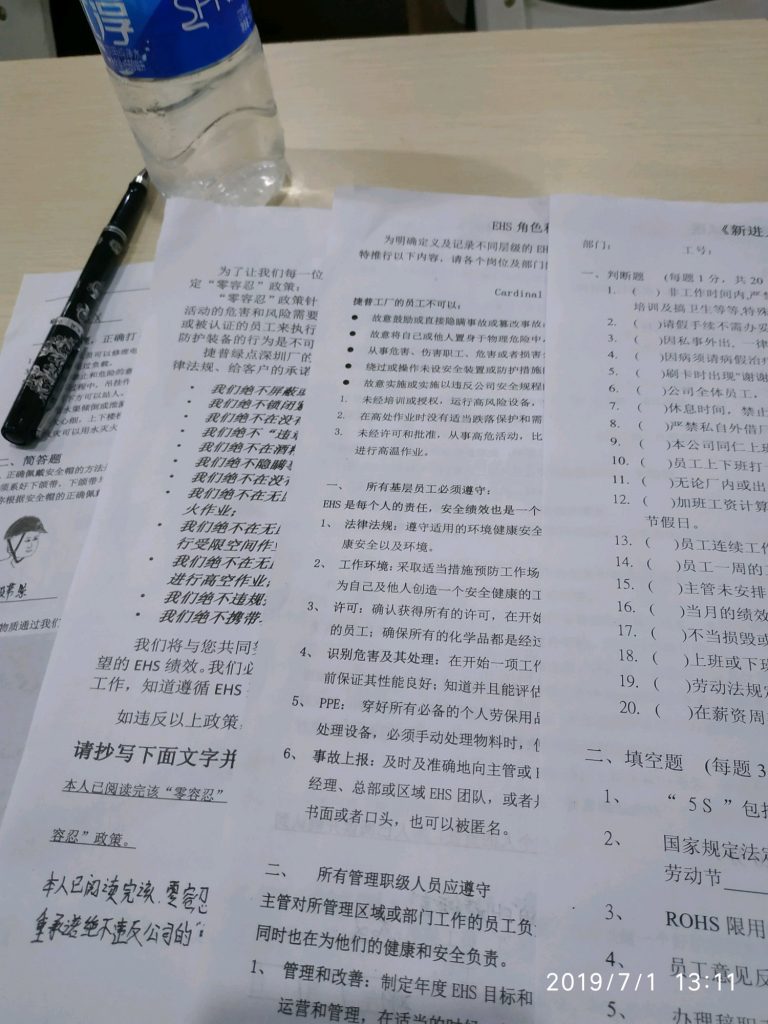 淳
为了让我们每一位
定“零容忍”政策:
“零容忍”政策针
活动的危害和风险需要
或被认证的员工来执行
防护装备的行为是不可
捷普绿点深圳厂的
律法规、给客户的承诺
• 我们绝不屏蔽
• 我们绝不锁闭
• 我们绝不在没
• 我们绝不“违
• 我们绝不在酒
• 我们绝不隐瞒
• 我们绝不在没
• 我们绝不在无
火作业;
• 我们绝不在无
行受限空间作
• 我们绝不在无
进行高空作业;
• 我们绝不违规
• 我们绝不携带
我们将与您共同
望的 EHS 绩效。我们必
工作,知道遵循 EHS
如违反以上政策,
请抄写下面文字并
本人已阅读完该“零容忍”
容忍”政策。
本人已阅读完该“零容忍
重承诺绝不违反公司的“
二、简答题
EHS 角色和
为明确定义及记录不同层级的 EH
特推行以下内容,请各个岗位及部门
Cardinal
捷普工厂的员工不可以:
● 故意鼓励或直接隐瞒事故或篡改事故
● 故意将自己或他人置身于物理危险中
● 从事危害、伤害职工、危害或者损害
● 绕过或操作未设安全装置或防护措施
● 故意实施或实施以违反公司安全规程
1. 未经培训或授权,运行高风险设备,
2. 在高处作业时没有适当跌落保护和需
3. 未经许可和批准,从事高危活动,比
进行高温作业。
一、 所有基层员工必须遵守:
EHS 是每个人的责任,安全绩效也是一个
1、 法律法规:遵守适用的环境健康安全
康安全以及环境。
2、 工作环境:采取适当措施预防工作场
为自己及他人创造一个安全健康的工
3、 许可:确认获得所有的许可,在开始
的员工;确保所有的化学品都是经过
4、 识别危害及其处理:在开始一项工作
前保证其性能良好;知道并且能评估
5、 PPE: 穿好所有必备的个人劳保用品
处理设备,必须手动处理物料时,使
6、 事故上报:及时及准确地向主管或 E
经理、总部或区域 EHS 团队,或者
书面或者口头,也可以被匿名。
二、 所有管理职级人员应遵守
主管对所管理区域或部门工作的员工负
同时也在为他们的健康和安全负责。
1、 管理和改善:制定年度 EHS 目标和
运营和管理,在适当的时候
《新进
部门: 工号:
一、判断题 (每题 1 分,共 20
1. ( ) 非工作时间内,严禁
培训及搞卫生等等,特殊
2. ( )请假手续不需办
3. ( )因私事外出,一律
4. ( )因病须请病假治疗
5. ( )刷卡时出现“谢谢
6. ( )公司全体员工,
7. ( )休息时间,禁止
8. ( )严禁私自外借厂
9. ( )本公司同仁上班
10. ( )员工上下班打
11. ( )无论厂内或出
12. ( )加班工资计算
节假日。
13. ( )员工连续工作
14. ( )员工一周的工
15. ( )主管未安排
16. ( )当月的绩效
17. ( )不当损毁或
18. ( )上班或下班
19. ( )劳动法规定
20. ( )在薪资周
二、填空题 (每题 3
1、 “5S”包括
2、 国家规定法定
劳动节
3、 ROHS 限用
4、 员工意见反
5、 办理辞职
2019/7/1 13:11